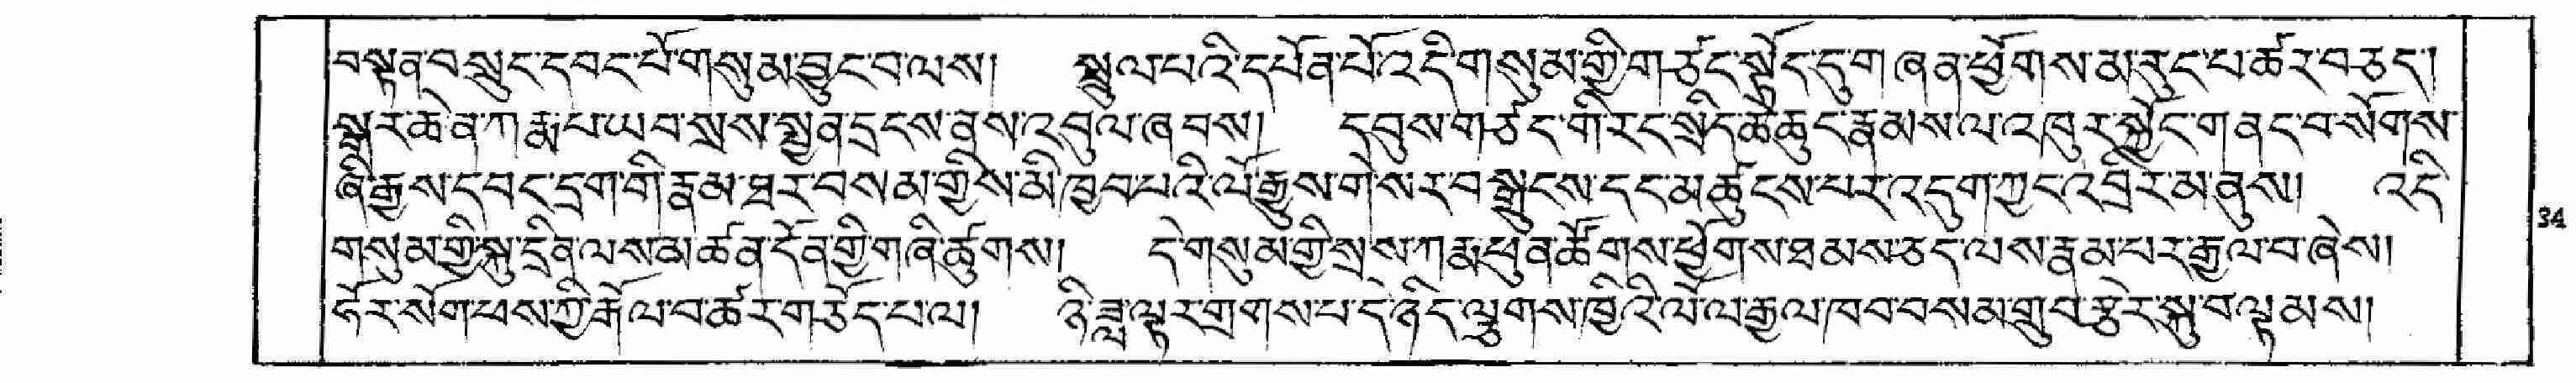 བསྟན་བསྲུང་དབང་པོ་གསུམ་བྱུང་བ་ལས། སྤྲུལ་པའི་དཔོན་པོ་འདི་གསུམ་གྱི་གཙང་སྟོད་དུ་གཞན་ཕྱོགས་མ་རུང་པ་ཚར་བཅད།
སྒར་ཆེན་ཀརྨ་པ་ཡབ་སྲས་སྤྱན་དྲངས་ནས་འབུལ་ཞབས། དབུས་གཙང་གི་རིང་སྲིད་ཆེ་ཆུང་རྣམས་ལ་འཁུར་སྐྱོང་གནང་བ་སོགས་
ཞི་རྒྱས་དབང་དྲག་གི་རྣམ་ཐར་བསམ་གྱིས་མི་ཁྱབ་པའི་ལོ་རྒྱུས་གེ་སར་བསྒྲུངས་དང་མཚུངས་པར་འདུག་ཀྱང་འབྲིར་མ་ནུས། འདི་
གསུམ་གྱི་སྐུ་དྲིན་ལས་མ་ཚན་དོན་གྱི་གཞི་ཚུགས། དེ་གསུམ་གྱི་སྲས་ཀརྨ་ཕུན་ཚོགས་ཕྱོགས་ཐམས་ཅད་ལས་རྣམ་པར་རྒྱལ་བ་ཞེས།
ཧོར་སོག་ཕས་ཀྱི་རྒོལ་བ་ཚར་གཅོད་པ་ལ། ཉི་ཟླ་ལྟར་གྲགས་པ་དེ་ཉིད་ལྕགས་ཁྱིའི་ལོ་ལ་རྒྱལ་ཁབ་བསམ་གྲུབ་རྩེར་སྐུ་བལྟམས།
34